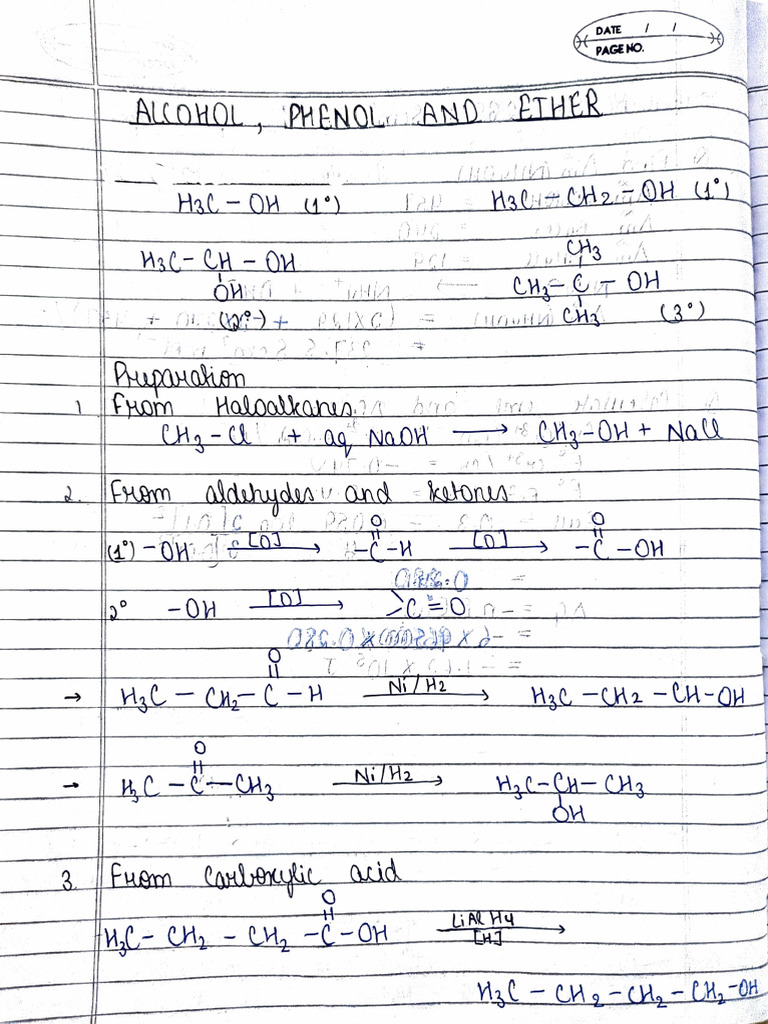 DATE / /
PAGE NO.
ALCOHOL, PHENOL AND ETHER
H3C - OH (1°) H3C - CH2 - OH (1°)
CH3
H3C - CH - OH CH3 - C - OH
OH
(2°) CH3 (3°)
Preparation
1 From Haloalkanes
CH3 - Cl + aq NaOH → CH3 - OH + NaCl
2. From aldehydes and ketones
O O
(1°) - OH [O] → - C - H [O] → - C - OH
2° - OH [O] → > C = O
O
→ H3C - CH2 - C - H Ni/H2 → H3C - CH2 - CH - OH
O
→ H3C - C - CH3 Ni/H2 → H3C - CH - CH3
OH
3. From Carboxylic acid
O
H3C - CH2 - CH2 - C - OH LiAlH4 [H] →
H3C - CH2 - CH2 - CH2 - OH